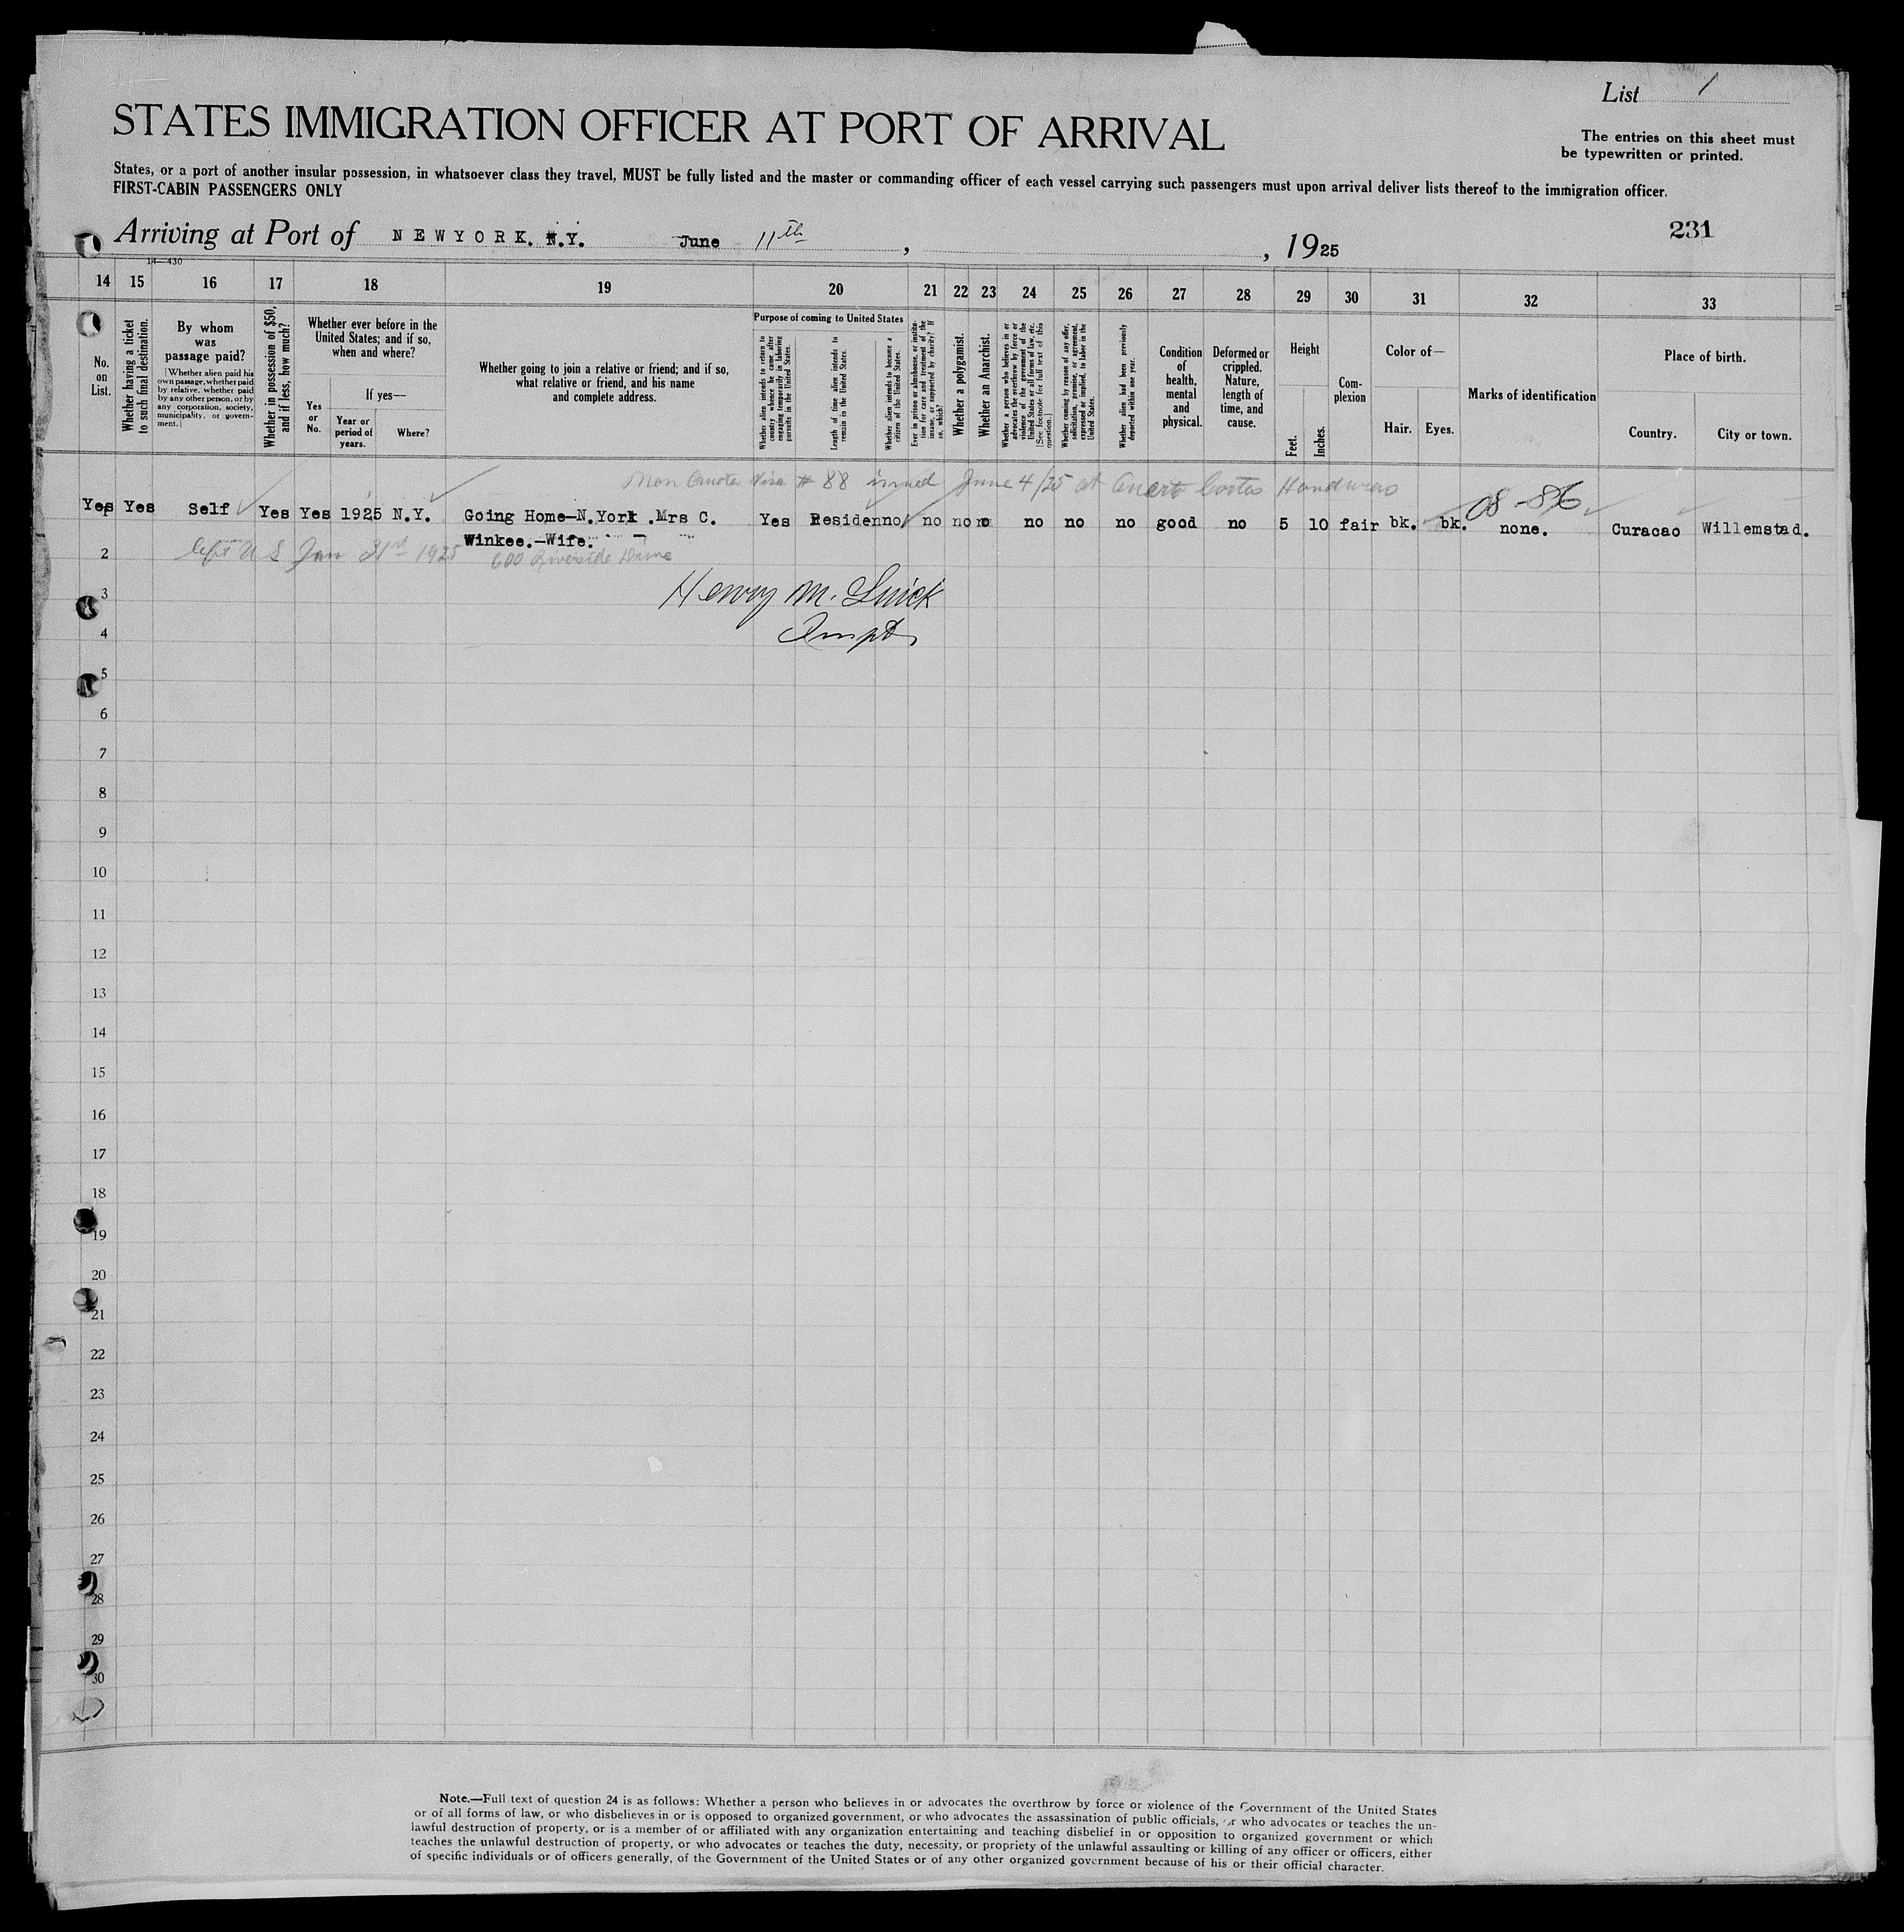 List 1
STATES IMMIGRATION OFFICER AT PORT OF ARRIVAL
The entries on this sheet must
be typewritten or printed.
States, or a port of another insular possession, in whatsoever class they travel, MUST be fully listed and the master or commanding officer of each vessel carrying such passengers must upon arrival deliver lists thereof to the immigration officer.
FIRST-CABIN PASSENGERS ONLY
231
Arriving at Port of NEWYORK. N.Y. June 11th, , 1925
14—430
14 15 16 17 18 19 20 21 22 23 24 25 26 27 28 29 30 31 32 33
No. on List.
Whether having a ticket to such final destination.
By whom was passage paid?
[Whether alien paid his own passage, whether paid by relative, whether paid by any other person, or by any corporation, society, municipality, or government.]
Whether in possession of $50, and if less, how much?
Whether ever before in the United States; and if so, when and where?
Yes or No.
If yes—
Year or period of years.
Where?
Whether going to join a relative or friend; and if so, what relative or friend, and his name and complete address.
Purpose of coming to United States
Whether alien intends to return to country whence he came after engaging temporarily in laboring pursuits in the United States.
Length of time alien intends to remain in the United States.
Whether alien intends to become a citizen of the United States.
Ever in prison or almshouse, or institution for care and treatment of the insane, or supported by charity? If so, which?
Whether a polygamist.
Whether an Anarchist.
Whether a person who believes in or advocates the overthrow by force or violence of the government of the United States or all forms of law, etc. [See footnote for full text of this question.]
Whether coming by reason of any offer, solicitation, promise, or agreement, expressed or implied, to labor in the United States.
Whether alien had been previously deported within one year.
Condition of health, mental and physical.
Deformed or crippled. Nature, length of time, and cause.
Height
Feet.
Inches.
Complexion
Color of—
Hair.
Eyes.
Marks of identification
Place of birth.
Country.
City or town.
Non Quota Visa # 88 issued June 4/25 at Puerto Cortes Honduras
Yes Yes Self Yes Yes 1925 N.Y. Going Home—N.York .Mrs C. Yes Residen no no no no no no no good no 5 10 fair bk. bk. none. Curacao Willemstad.
Winkee.—Wife.
2 left U S Jan 31st 1925 600 Riverside Drive
3
Henry M.
4
5
6
7
8
9
10
11
12
13
14
15
16
17
18
19
20
21
22
23
24
25
26
27
28
29
30
Note.—Full text of question 24 is as follows: Whether a person who believes in or advocates the overthrow by force or violence of the Government of the United States
or of all forms of law, or who disbelieves in or is opposed to organized government, or who advocates the assassination of public officials, or who advocates or teaches the un-
lawful destruction of property, or is a member of or affiliated with any organization entertaining and teaching disbelief in or opposition to organized government or which
teaches the unlawful destruction of property, or who advocates or teaches the duty, necessity, or propriety of the unlawful assaulting or killing of any officer or officers, either
of specific individuals or of officers generally, of the Government of the United States or of any other organized government because of his or their official character.